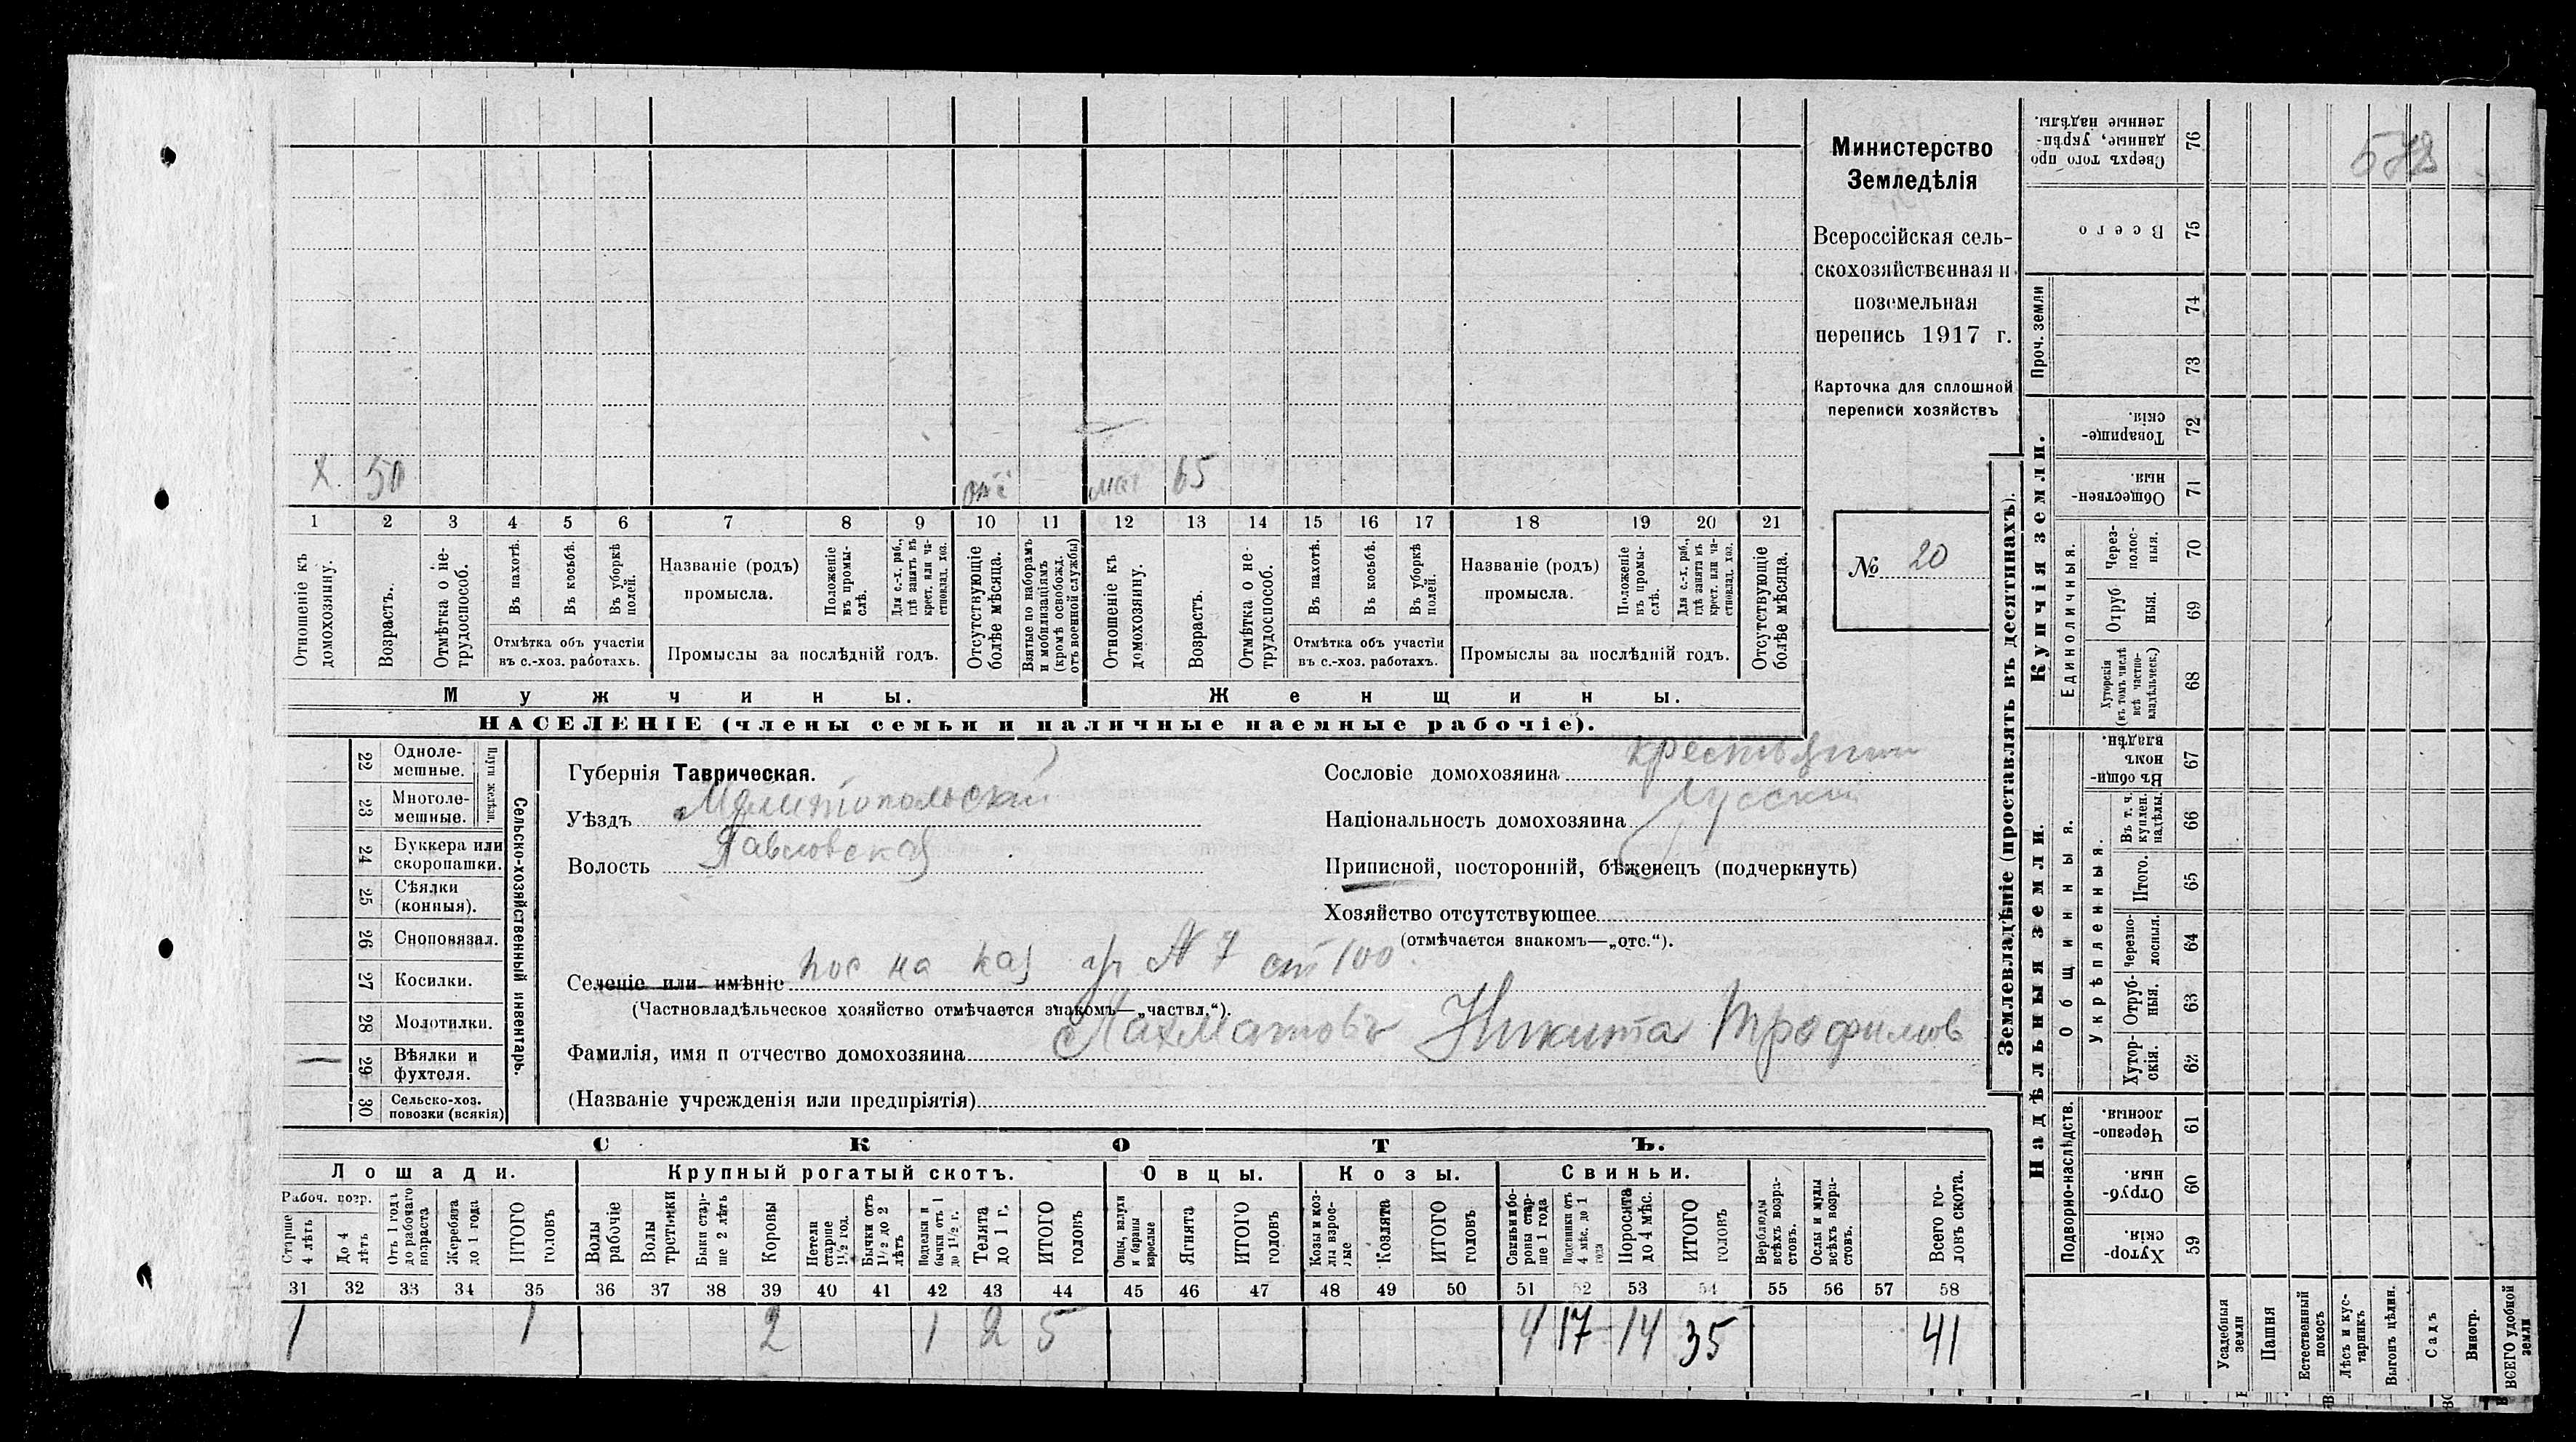 х. 50 отс мат 65
1 2 3 4 5 6 7 8 9 10 11 12 13 14 15 16 17 18 19 20 21
Отношеніе къ домохозяину.
Возрастъ.
Отмѣтка о не-
трудоспособ.
Въ пахотѣ.
Въ косьбѣ.
Въ уборкѣ
полей.
Отмѣтка объ участіи
въ с.-хоз. работахъ.
Названіе (родъ)
промысла.
Положеніе
въ промы-
слѣ.
Для с.-х. раб.,
гдѣ занятъ въ
крест. или ча-
стновлад. хоз.
Промыслы за послѣдній годъ.
Отсутствующіе
болѣе мѣсяца.
Взятые по наборамъ
и мобилизаціямъ
(кромѣ освобожд.
отъ военной службы)
Отношеніе къ
домохозяину.
Возрастъ.
Отмѣтка о не-
трудоспособ.
Въ пахотѣ.
Въ косьбѣ.
Въ уборкѣ
полей.
Отмѣтка объ участіи
въ с.-хоз. работахъ.
Названіе (родъ)
промысла.
Положеніе
въ промы-
слѣ.
Для с.-х. раб.,
гдѣ занята въ
крест. или ча-
стновлад. хоз.
Промыслы за послѣдній годъ.
Отсутствующіе
болѣе мѣсяца.
Мужчины.
Женщины.
НАСЕЛЕНІЕ (члены семьи и наличные наемные рабочіе).
Министерство
Земледѣлія
Всероссійская сель-
скохозяйственная и
поземельная
перепись 1917 г.
Карточка для сплошной
переписи хозяйствъ
№ 20
22 Одноле-
мешные.
23 Многоле-
мешные.
Плуги желѣзн.
24 Буккера или
скоропашки.
25 Сѣялки
(конныя).
26 Сноповязал.
27 Косилки.
28 Молотилки.
29 Вѣялки и
фухтеля.
30 Сельско-хоз.
повозки (всякія)
Сельско-хозяйственный инвентарь.
Губернія Таврическая.
Уѣздъ Мелитопольскій
Волость Павловская
Сословіе домохозяина крестьянин
Національность домохозяина русскій
Приписной, посторонній, бѣженецъ (подчеркнуть)
Хозяйство отсутствующее
(отмѣчается знакомъ—„отс.“).
Селеніе или имѣніе пос на каз уч № 7 ст 100
(Частновладѣльческое хозяйство отмѣчается знакомъ—„частвл.“).
Фамилія, имя и отчество домохозяина Лахматовъ Никита Трофимов
(Названіе учрежденія или предпріятія)
СКОТЪ.
Лошади.
Крупный рогатый скотъ.
Овцы.
Козы.
Свиньи.
Рабоч. возр.
Старше
4 лѣтъ
До 4
лѣтъ
Отъ 1 года
до рабочаго
возраста
Жеребята
до 1 года
ИТОГО
головъ
Волы
рабочіе
Волы
третьяки
Быки стар-
ше 2 лѣтъ
Коровы
Нетели
старше
1 1/2 год.
Бычки отъ
1 1/2 до 2
лѣтъ
Подтелки и
бычки отъ 1
до 1 1/2 г.
Телята
до 1 г.
ИТОГО
головъ
Овцы, валухи
и бараны
взрослые
Ягнята
ИТОГО
головъ
Козы и коз-
лы взрос-
лые
Козлята
ИТОГО
головъ
Свиньи и бо-
ровы стар-
ше 1 года
Подсвинки отъ
4 мѣс. до 1
года
Поросята
до 4 мѣс.
ИТОГО
головъ
Верблюды
всѣхъ возра-
стовъ.
Ослы и мулы
всѣхъ возра-
стовъ.
Всего го-
ловъ скота.
31 32 33 34 35 36 37 38 39 40 41 42 43 44 45 46 47 48 49 50 51 52 53 54 55 56 57 58
1 1 2 1 2 5 4 17 14 35 41
Землевладѣніе (проставлять въ десятинахъ).
Купчія земли.
Надѣльныя земли.
Сверхъ того про
данные, укрѣп-
ленные надѣлы.
76
578
Всего
75
Проч. земли
74
73
Товарище-
скія.
72
Обществен-
ныя.
71
Единоличныя.
Через-
полос-
ныя.
70
Отруб
ныя.
69
Хуторскія
(въ томъ числѣ
всѣ частно-
владѣльческ.)
68
Общинныя.
Въ общи-
номъ
владѣн.
67
Укрѣпленныя.
Въ т. ч.
куплен.
надѣлы.
66
Итого.
65
Черезпо-
лосныя.
64
Отруб-
ныя.
63
Хутор-
скія.
62
Подворно-наслѣдств.
Черезпо-
лосныя.
61
Отруб-
ныя.
60
Хутор-
скія.
59
Усадебныя
земли
Пашня
Естественный
покосъ
Лѣсъ и кус-
тарникъ
Выгонъ цѣлин.
Садъ
Виногр.
ВСЕГО удобной
земли